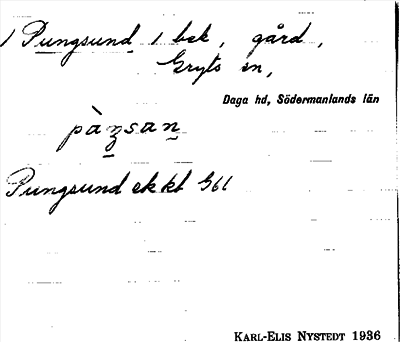 1 Pungsund 1 bek, gård,
Gryts sn,
Daga hd, Södermanlands län
Pungsund ek kl G61
KARL-ELIS NYSTEDT 1936